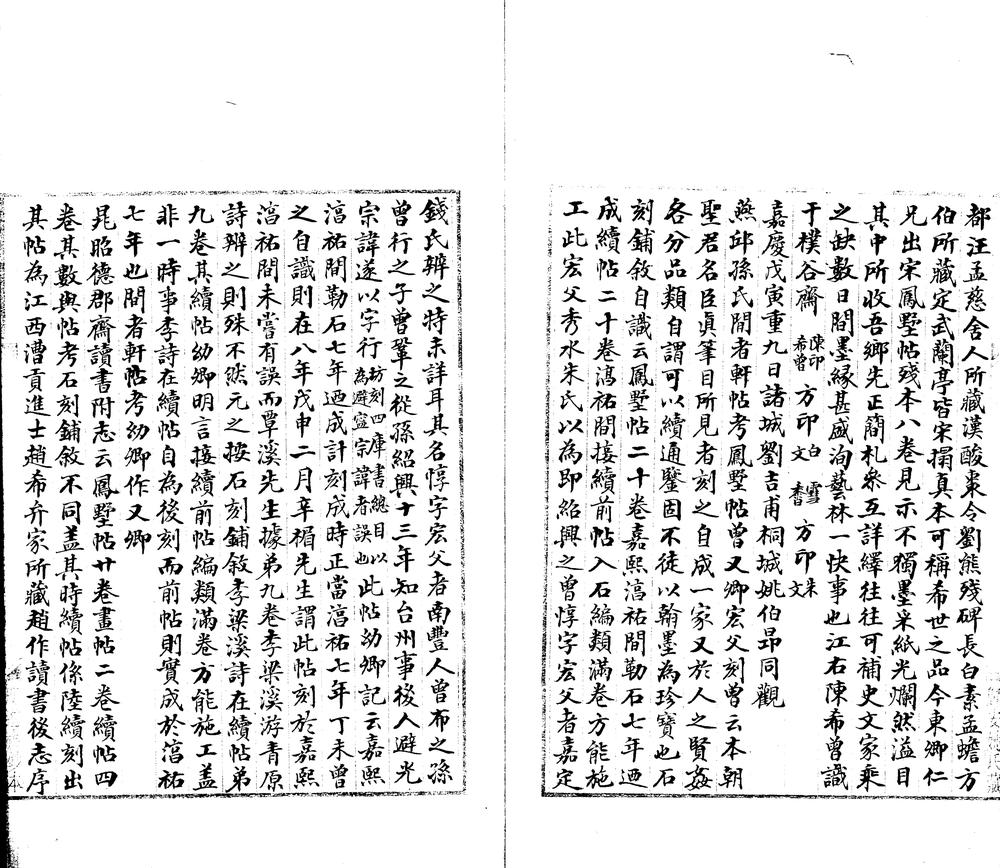 都汪孟慈舍人所藏漢酸棗令劉熊殘碑長白素孟蟾方
伯所藏定武蘭亭皆宋搨真本可稱希世之品今東卿仁
兄出宋鳳墅帖殘本八卷見示不獨墨采紙光爛然溢目
其中所收吾鄉先正簡札叅互詳繹往往可補史文家乘
之缺數日間墨緣甚盛洵藝林一快事也江右陳希曾識
于樸谷齋 陳印希曾 方印白文 雪香 方印朱文
嘉慶戊寅重九日諸城劉吉甫桐城姚伯昂同觀
燕邱孫氏閒者軒帖考鳳墅帖曾又卿宏父刻曾云本朝
聖君名臣真筆目所見者刻之自成一家又於人之賢姦
各分品類自謂可以續通鑒固不徒以翰墨為珍寶也石
刻鋪敘自識云鳳墅帖二十卷嘉熙淳祐間勒石七年迺
成續帖二十卷淳祐間接續前帖入石編類滿卷方能施
工此宏父秀水朱氏以為即紹興之曾惇字宏父者嘉定
錢氏辨之特未詳耳其名惇字宏父者南豐人曾布之孫
曾行之子曾鞏之從孫紹興十三年知台州事後人避光
宗諱遂以字行坊刻四庫書總目以為避寧宗諱者誤也此帖幼卿記云嘉熙
淳祐間勒石七年迺成計刻成時正當淳祐七年丁未曾
之自識則在八年戊申二月辛楣先生謂此帖刻於嘉熙
淳祐間未嘗有誤而覃溪先生據弟九卷李梁溪游青原
詩辨之則殊不然元之按石刻鋪敘李梁溪詩在續帖弟
九卷其續帖幼卿明言接續前帖編類滿卷方能施工蓋
非一時事李詩在續帖自為後刻而前帖則實成於淳祐
七年也閒者軒帖考幼卿作又卿
晁昭德郡齋讀書附志云鳳墅帖廿卷畫帖二卷續帖四
卷其數與帖考石刻鋪敘不同蓋其時續帖係陸續刻出
其帖為江西漕貢進士趙希弁家所藏趙作讀書後志序